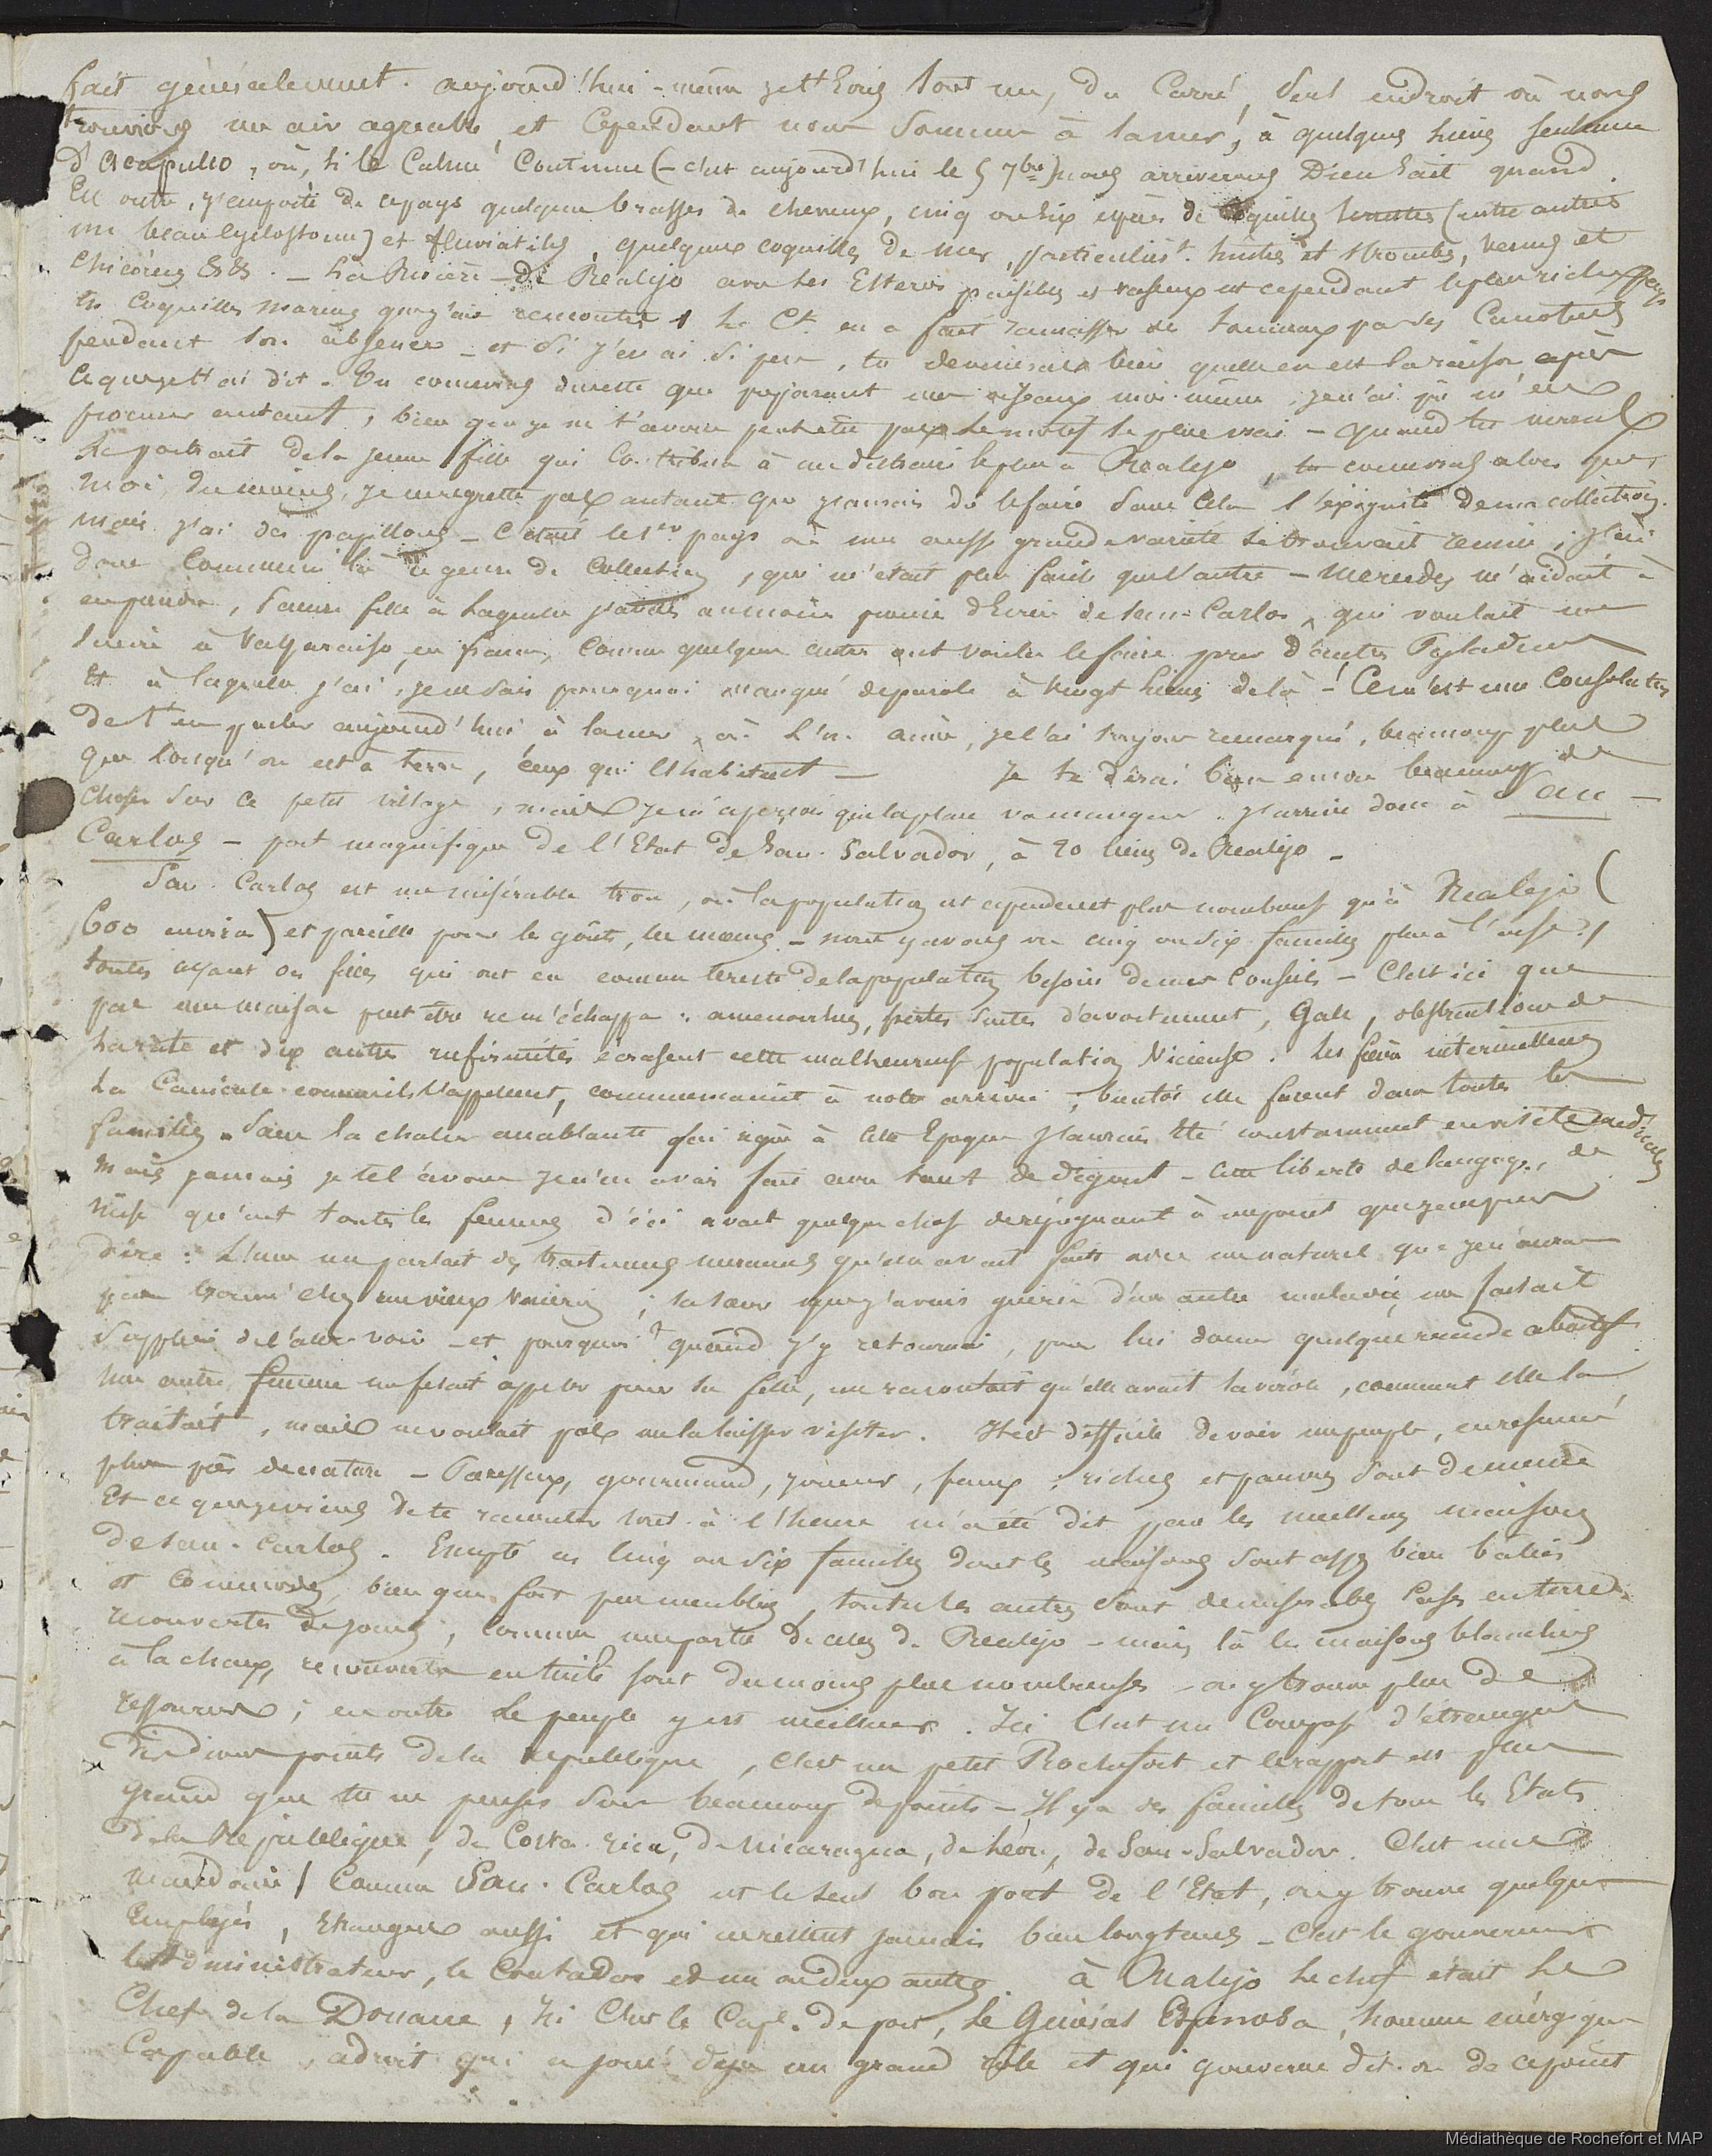 fait généralement. aujourd'hui-même je t'écris tout nu, du Carré, seul endroit où nous
trouvions un air agréable, et cependant nous sommes à la mer, à quelques lieues seulement
d'Acapulco, où, si le Calme Continue (- c'est aujourd'hui le 5 7bre) nous arriverons Dieu sait quand.
En outre, j'emporte de ce pays quelques brasses de cheveux, cinq ou six espèces de coquilles terrestres (entre autres
un beau cyclostome) et fluviatiles, quelques coquilles de mer, particulièrt. huîtres et strombes, venus et
chicorées &&. - La Rivière de Realejo avec les Esteros paisibles et vaseux est cependant le plus riche pays
en Coquilles marines que j'aie rencontré, le Ct. en a fait ramasser des tonneaux par les Canotiers
pendant son absence - et si j'en ai si peu, tu devineras bien quelle en est la raison après
ce que je t'ai dit. Tu conviens du reste que préparant mes oiseaux moi-même, je n'ai pu m'en
procurer autant, bien que je ne t'avoue peut être pas le motif le plus vrai - Quand tu verras
le portrait de la jeune fille qui Contribua à me distraire le plus à Realejo, tu conviendras alors que
moi, du moins, je ne regrette pas autant que j'aurais dû le faire sans cela l'exiguité de ma collection.
Mais j'ai des papillons - C'était le 1er pays où une aussi grande variété se trouvait réunie; j'ai
donc Commencé là ce genre de Collection, qui m'était plus facile que l'autre - Mercedes m'aidait à
en prendre, pauvre fille à laquelle j'avais au moins promis d'Ecrire de San-Carlos, qui voulait me
suivre à Valparaiso, en france, comme quelques autres ont voulu le faire pour d'autres
Et à laquelle j'ai, je ne sais pourquoi manqué de parole à vingt lieues de là - Ce m'est une Consolation
de t'en parler aujourd'hui à la mer, où l'on aime, je l'ai toujours remarqué, beaucoup plus
que lorsqu'on est à terre, ceux qui l'habitent - Je te dirai bien encore beaucoup de
choses sur ce petit village, mais je m'aperçois que la place va manquer. J'arrive donc à San-
Carlos - port magnifique de l'Etat de San-Salvador, à 20 lieues de Realejo -
San-Carlos est un misérable trou, où la population est cependant plus nombreuse qu'à Realejo (
600 environ) et pareille pour les goûts, les moeurs - nous y avons vu cinq ou six familles plus à l'aise,
toutes ayant des filles qui ont eu comme le reste de la population besoin de mes Conseils - C'est ici que
pas une maison peut être ne m'échappa : amenorrhées, pertes suites d'avortement, Gale, obstructions de
la rate et dix autres infirmités écrasent cette malheureuse population vicieuse. Les fièvres intermittentes
La Canicule comme ils l'appellent, commençaient à notre arrivée; bientôt elles furent dans toutes les
familles. Sans la chaleur accablante qui règne à cette Epoque j'aurais été constamment en visites médicales
Mais jamais je te l'avoue je n'en avais fait avec tant de dégoût - cette liberté de langage, de
mise qu'ont toutes les femmes d'ici avait quelque chose de répugnant à un point que je ne puis
dire : L'une me parlait des traitemens mercuriels qu'elle avait faits avec un naturel que je n'aurais
pas trouvé chez un vieux vénérien; sa soeur que j'avais guérie d'une autre maladie, me faisait
supplier de l'aller voir - et pourquoi ? quand j'y retournai, pour lui donner quelque remède abortif.
Une autre femme me faisait appeler pour sa fille, me racontait qu'elle avait la vérole, comment elle la
traitait, mais ne voulait pas me la laisser visiter. Il est difficile de voir un peuple, en résumé,
plus près de nature - Paresseux, gourmand, joueur, faux; riches et pauvres sont de même
Et ce que je viens de te raconter tout à l'heure m'a été dit par les meilleures maisons
de San-Carlos. Excepté ces cinq ou six familles dont les maisons sont assez bien bâties
et commodes, bien que fort peu meublées, toutes les autres sont de misérables cases en terre
recouvertes de joncs, comme une partie de celles de Realejo - mais là les maisons blanchies
à la chaux, recouvertes en tuiles sont du moins plus nombreuses - on y trouve plus de
ressources; en outre le peuple y est meilleur. Ici C'est un Composé d'étrangers
des divers points de la république, c'est un petit Rochefort et le rapport est plus
grand que tu ne penses sous beaucoup de points - Il y a des familles de tous les Etats
de la République, de Costa-rica, de Nicaragua, de Léon, de San-Salvador. C'est une
/ Comme San-Carlos est le seul bon port de l'Etat, on y trouve quelques
Employés, Etrangers aussi et qui ne restent jamais bien longtems - C'est le gouverneur
l'Administrateur, le Contador et un ou deux autres. à Realejo le chef était le
Chef de la Douane, Ici C'est le Cape. de port, le Général Espinosa, homme énergique
Capable, adroit qui a joué déjà un grand rôle et qui gouverne dit-on de ce point
Médiathèque de Rochefort et MAP